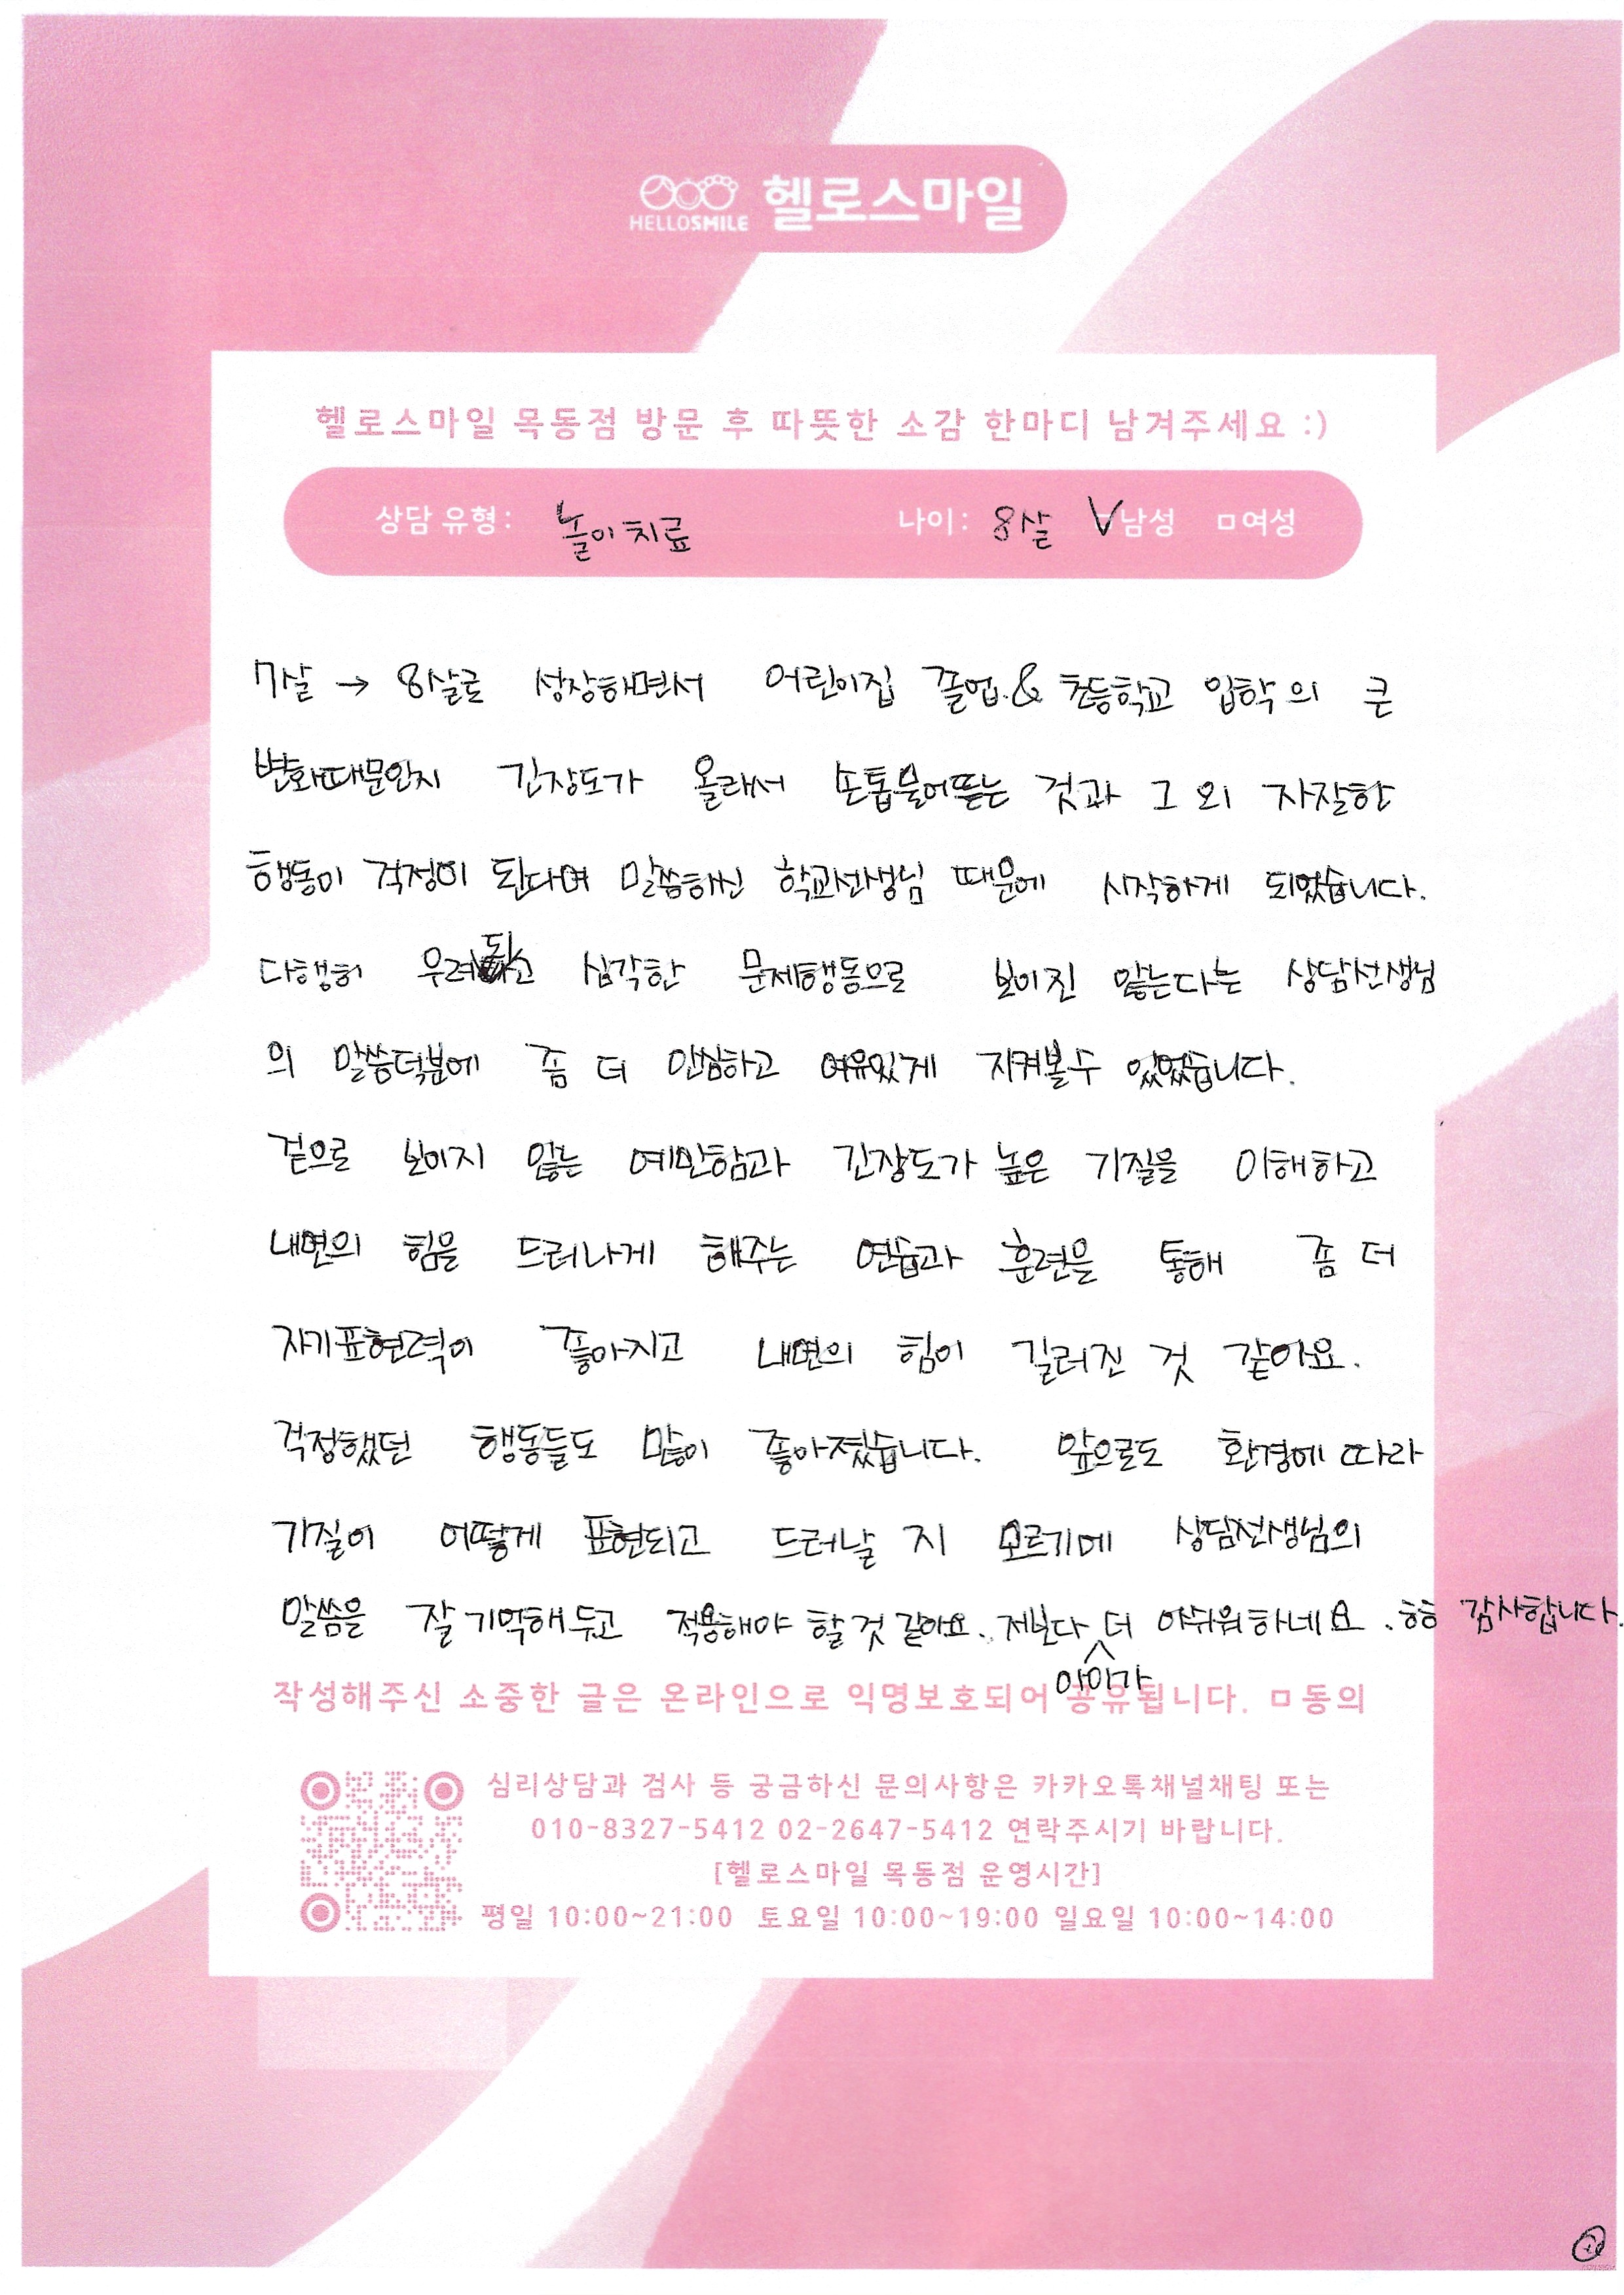 HELLOSMILE 헬로스마일
헬로스마일 목동점 방문 후 따뜻한 소감 한마디 남겨주세요 :)
상담 유형: 놀이치료 나이: 8살 V남성 □여성
7살 → 8살로 성장하면서 어린이집 졸업 & 초등학교 입학의 큰
변화때문인지 긴장도가 올라서 손톱물어뜯는 것과 그 외 자잘한
행동이 걱정이 된다며 말씀하신 학교선생님 때문에 시작하게 되었습니다.
다행히 우려되고 심각한 문제행동으로 보이진 않는다는 상담선생님
의 말씀덕분에 좀 더 안심하고 여유있게 지켜볼수 있었습니다.
겉으로 보이지 않는 예민함과 긴장도가 높은 기질을 이해하고
내면의 힘을 드러나게 해주는 연습과 훈련을 통해 좀 더
자기표현력이 좋아지고 내면의 힘이 길러진 것 같아요.
걱정했던 행동들도 많이 좋아졌습니다. 앞으로도 환경에 따라
기질이 어떻게 표현되고 드러날 지 모르기에 상담선생님의
말씀을 잘 기억해두고 적용해야 할 것 같아요. 저보다 아이가 더 아쉬워하네요. ㅎㅎ 감사합니다.
작성해주신 소중한 글은 온라인으로 익명보호되어 공유됩니다. □동의
심리상담과 검사 등 궁금하신 문의사항은 카카오톡채널채팅 또는
010-8327-5412 02-2647-5412 연락주시기 바랍니다.
[헬로스마일 목동점 운영시간]
평일 10:00~21:00 토요일 10:00~19:00 일요일 10:00~14:00